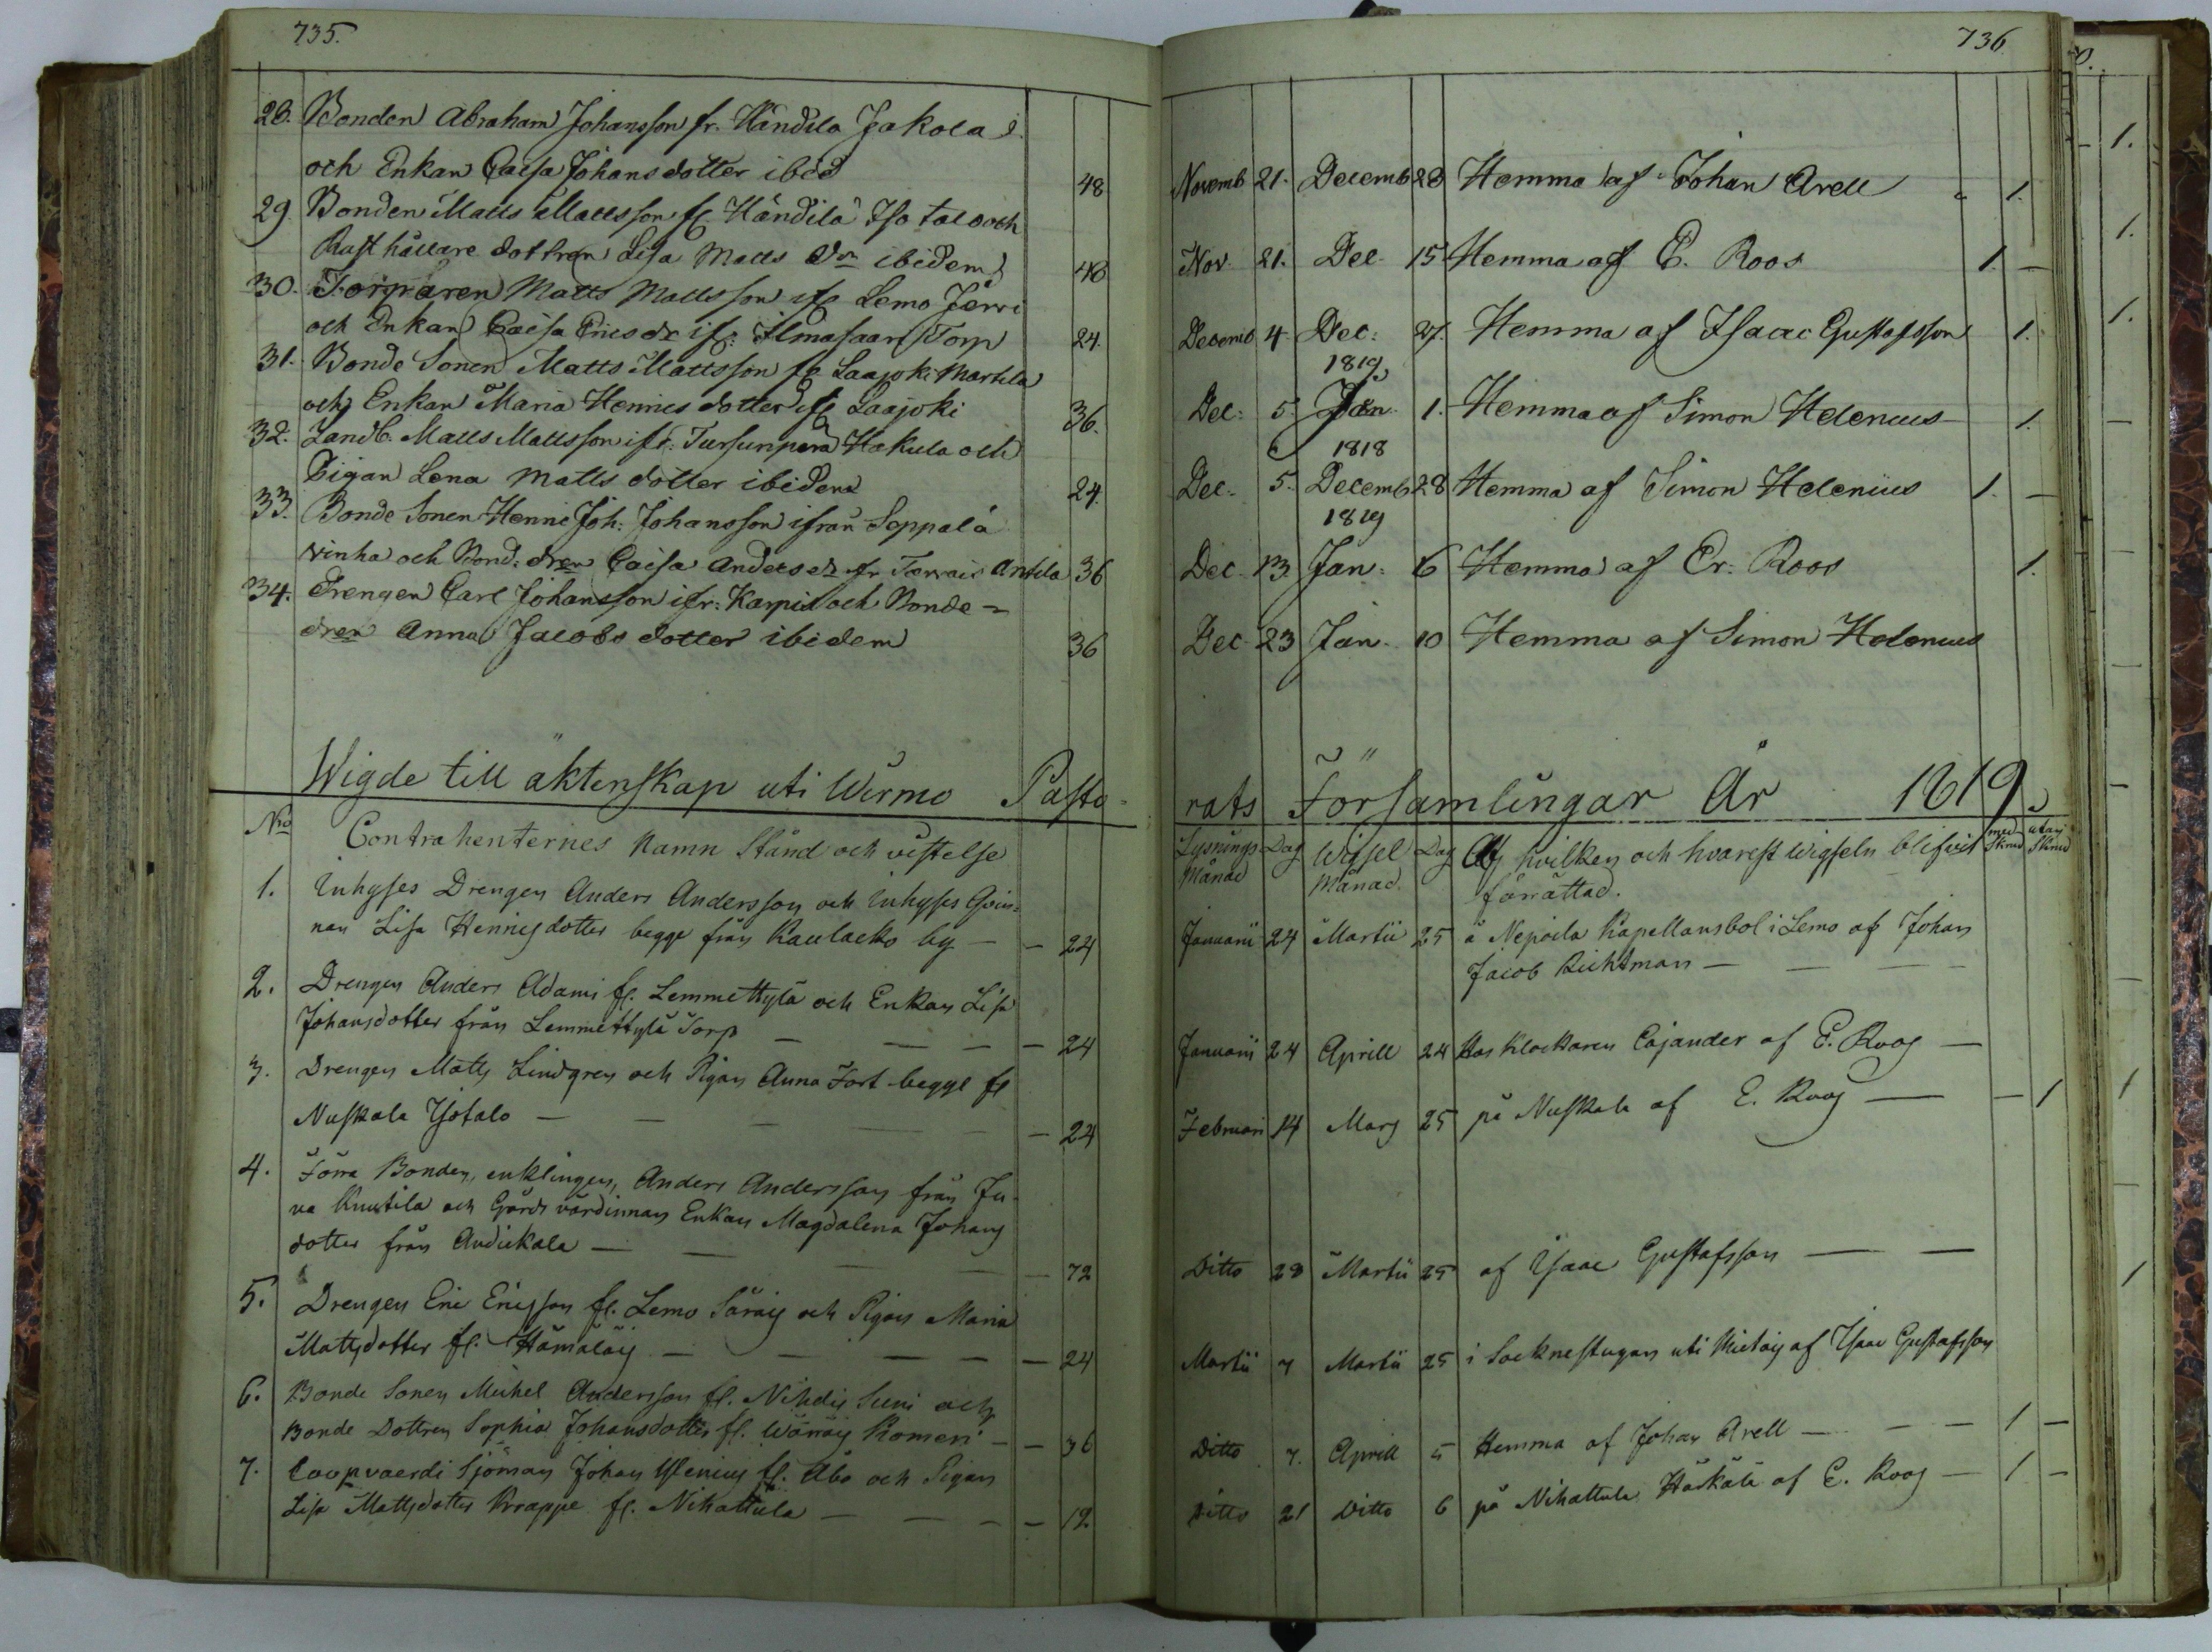 735.
28. Bonden Abraham Johansson fr. Händilä Jakola
och Enkan Caisa Johansdotter ibid 48
29. Bonden Matts Mattsson fr Händilä Iso talo och
Rusthållare dottren Lisa Matts dr ibidem 48
30. Torparen Matts Mattsson ifr Lemo Järvi
och Enkan Caisa Ericsdr ifr: Ilmasaari Torp 24.
31. Bonde Sonen Matts Mattsson fr Laajoki Martila
och Enkan Maria Hennesdotter ifr Laajoki 36.
32. Landb. Matts Mattsson ifr: Tursunperä Hakula och
Pigan Lena Matts dotter ibidem 24.
33. Bonde Sonen Henric Joh: Johansson ifrån Seppälä
vinha och Bond: dren Caisa Anders dr ifr Tervais Antila 36
34. Drengen Carl Johansson ifr: Karpis och Bonde-
dren Anna Jacobs dotter ibidem 36
Wigde till äktenskap uti Wirmo Pasto-
No Contrahenternes Namn Stånd och vistelse
1. Inhyses Drengen Anders Andersson och Inhyses Qvin-
nan Lisa Hennisdotter begge från Raulacko by — — 24
2. Drengen Anders Adami fr. Lemmettylä och Enkan Lisa
Johansdotter från Lemmettylä Torp — — — — 24
3. Drengen Matts Lindgren och Pigan Anna Fort begge fr
Nuskala Yotalo — — — — — 24
4. Förra Bonden, enklingen, Anders Andersson från Ju-
va Knutila och Gårds värdinnan Enkan Magdalena Johans
dotter från Audickala — — — — — 72
5. Drengen Eric Ericsson fr. Lemo Säräis och Pigan Maria
Mattsdotter fr. Hämäläis — — — — — 24
6. Bonde Sonen Michel Andersson fr. Nihdis Suni och
Bonde Dottren Sophia Johansdotter fr. Wäräis Komeri — — 36
7. Coopvaerdi Sjöman Johan Ylenius fr. Åbo och Pigan
Lisa Mattsdotter Krappe fr. Nihattula — — — — 12
736
Novemb 21. Decemb 28 Hemma af Johan Arell 1.
Nov. 21. Dec. 15 Hemma af E. Roos 1. —
Decemb 4. Dec: 27. Hemma af Isaac Gustafsson 1.
1819
Dec: 5. Jan. 1. Hemma af Simon Helenius 1.
1818
Dec. 5. Decemb 28 Hemma af Simon Helenius 1. —
1819
Dec. 13. Jan: 6 Hemma af Er: Roos 1.
Dec 23 Jan. 10 Hemma af Simon Helenius
rats Församlingar År 1819
Lysnings Månad Dag Wigsel Månad. Dag Af hvilken och hvarest Wigseln blifvit med Skrud utan Skrud
förrättad.
Januarii 24 Martii 25 å Nepoila Kapellansbol i Lemo af Johan
Jacob Richtman — — —
Januarii 24 Aprill 24 Hos Klockaren Cajander af E. Roos —
Februari 14 Mars 25 på Nuskala af E. Roos — — 1
Ditto 28 Martii 25 af Isaac Gustafsson — —
Martii 7 Martii 25 i Socknestugan uti Mietois af Isaac Gustafsson
Ditto 7. Aprill 5 Hemma af Johan Arell — — — 1 —
Ditto 21 Ditto 6 på Nihattula Härkälä af E. Roos — 1 —